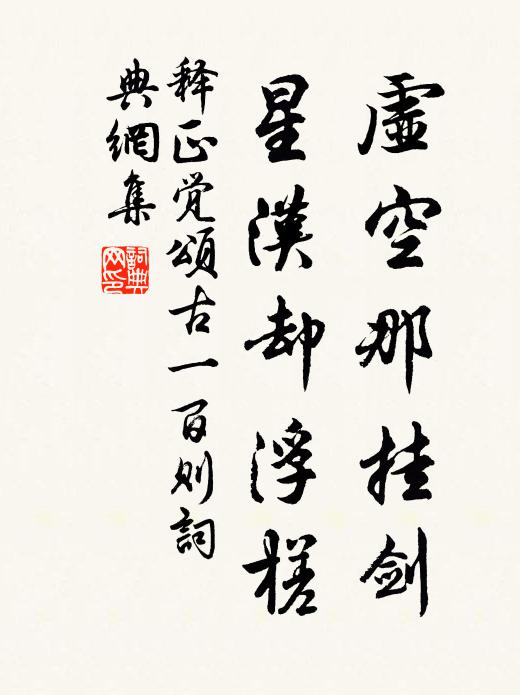 虛空那挂劍
星漢却浮槎
释正觉頌古一百则詞
典網集
詞典网印